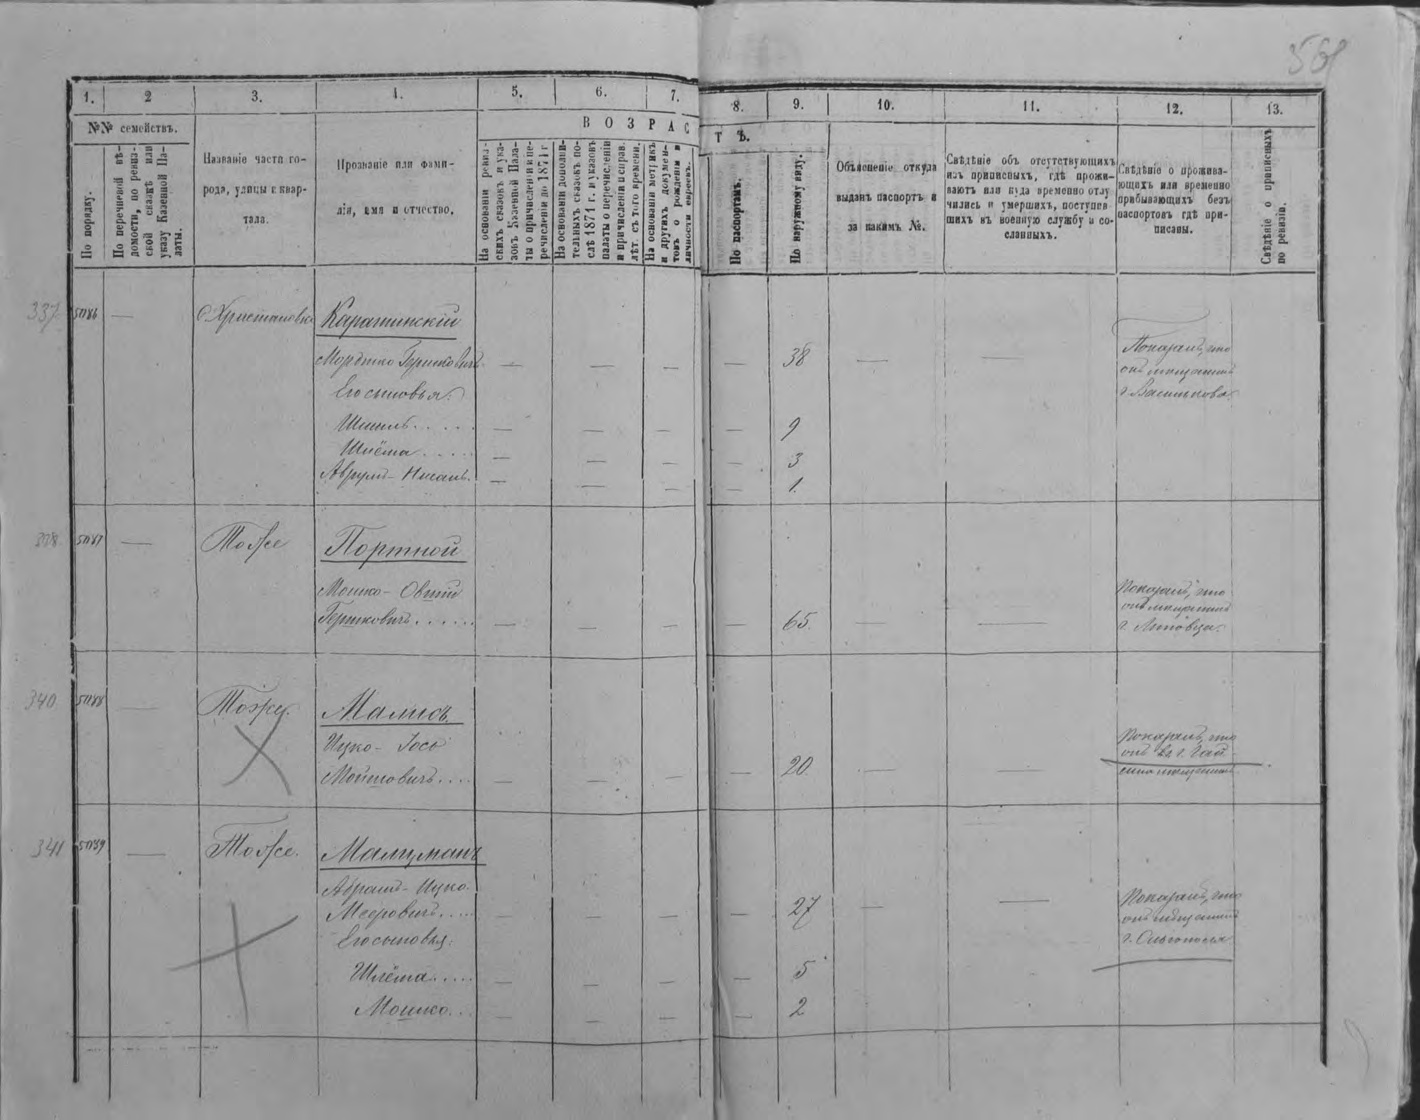 561
1. 2 3. 4. 5. 6. 7. 8. 9. 10. 11. 12. 13.
№№ семействъ.
По порядку.
По перечневой вѣ-
домости, по ревиз-
ской сказкѣ или
указу Казенной Па-
латы.
Названіе части го-
рода, улицы и квар-
тала.
Прозваніе или фами-
лія, имя и отчество.
ВОЗРАСТѢ.
На основаніи ревиз-
скихъ сказокъ и ука-
зовъ Казенной Пала-
ты о причисленіи и пе-
речисленіи до 1874 г.
На основаніи дополни-
тельныхъ сказокъ по-
слѣ 1874 г. и указовъ
палаты о перечисленіи
и причисленіи и справ.
лѣт. съ того времени.
На основаніи метрикъ
и другихъ докумен-
товъ о рожденіи и
личности евреевъ.
По паспортамъ.
По наружному виду.
Объясненіе откуда
выданъ паспортъ и
за какимъ №.
Свѣдѣніе объ отсутствующихъ
изъ приписныхъ, гдѣ прожи-
ваютъ или куда временно отлу
чились и умершихъ, поступив
шихъ въ военную службу и со-
сланныхъ.
Свѣдѣніе о прожива-
ющихъ или временно
прибывающихъ безъ
паспортовъ гдѣ при-
писаны.
Свѣдѣніе о приписныхъ
по ревизіи.
337. — Каратинскій
Мордко Гершковичъ — — — — 38 — — Показалъ, что
онъ мещанинъ
г. Василькова.
Его сыновья:
— — — — 9
Шлёма — — — — 3
Аврумъ-Нисанъ. — — — — 1.
— Тоже Портной
Мошко-Овшій
Гершковичъ — — — — 65. — — Показалъ, что
онъ мещанинъ
г. Липовца.
340 — Тоже. Малисъ
Ицко-Іось
Мошковичъ — — — — 20. — — Показалъ, что
онъ въ г. Гай
сине мещанинъ
341 — Тоже. Малцманъ
Абрамъ-Ицко
Мееровичъ — — — — 27 — — Показалъ, что
онъ мещанинъ
г. Ольгополя
Его сыновья:
Шлёма — — — — 5
Мошко — — — — 2